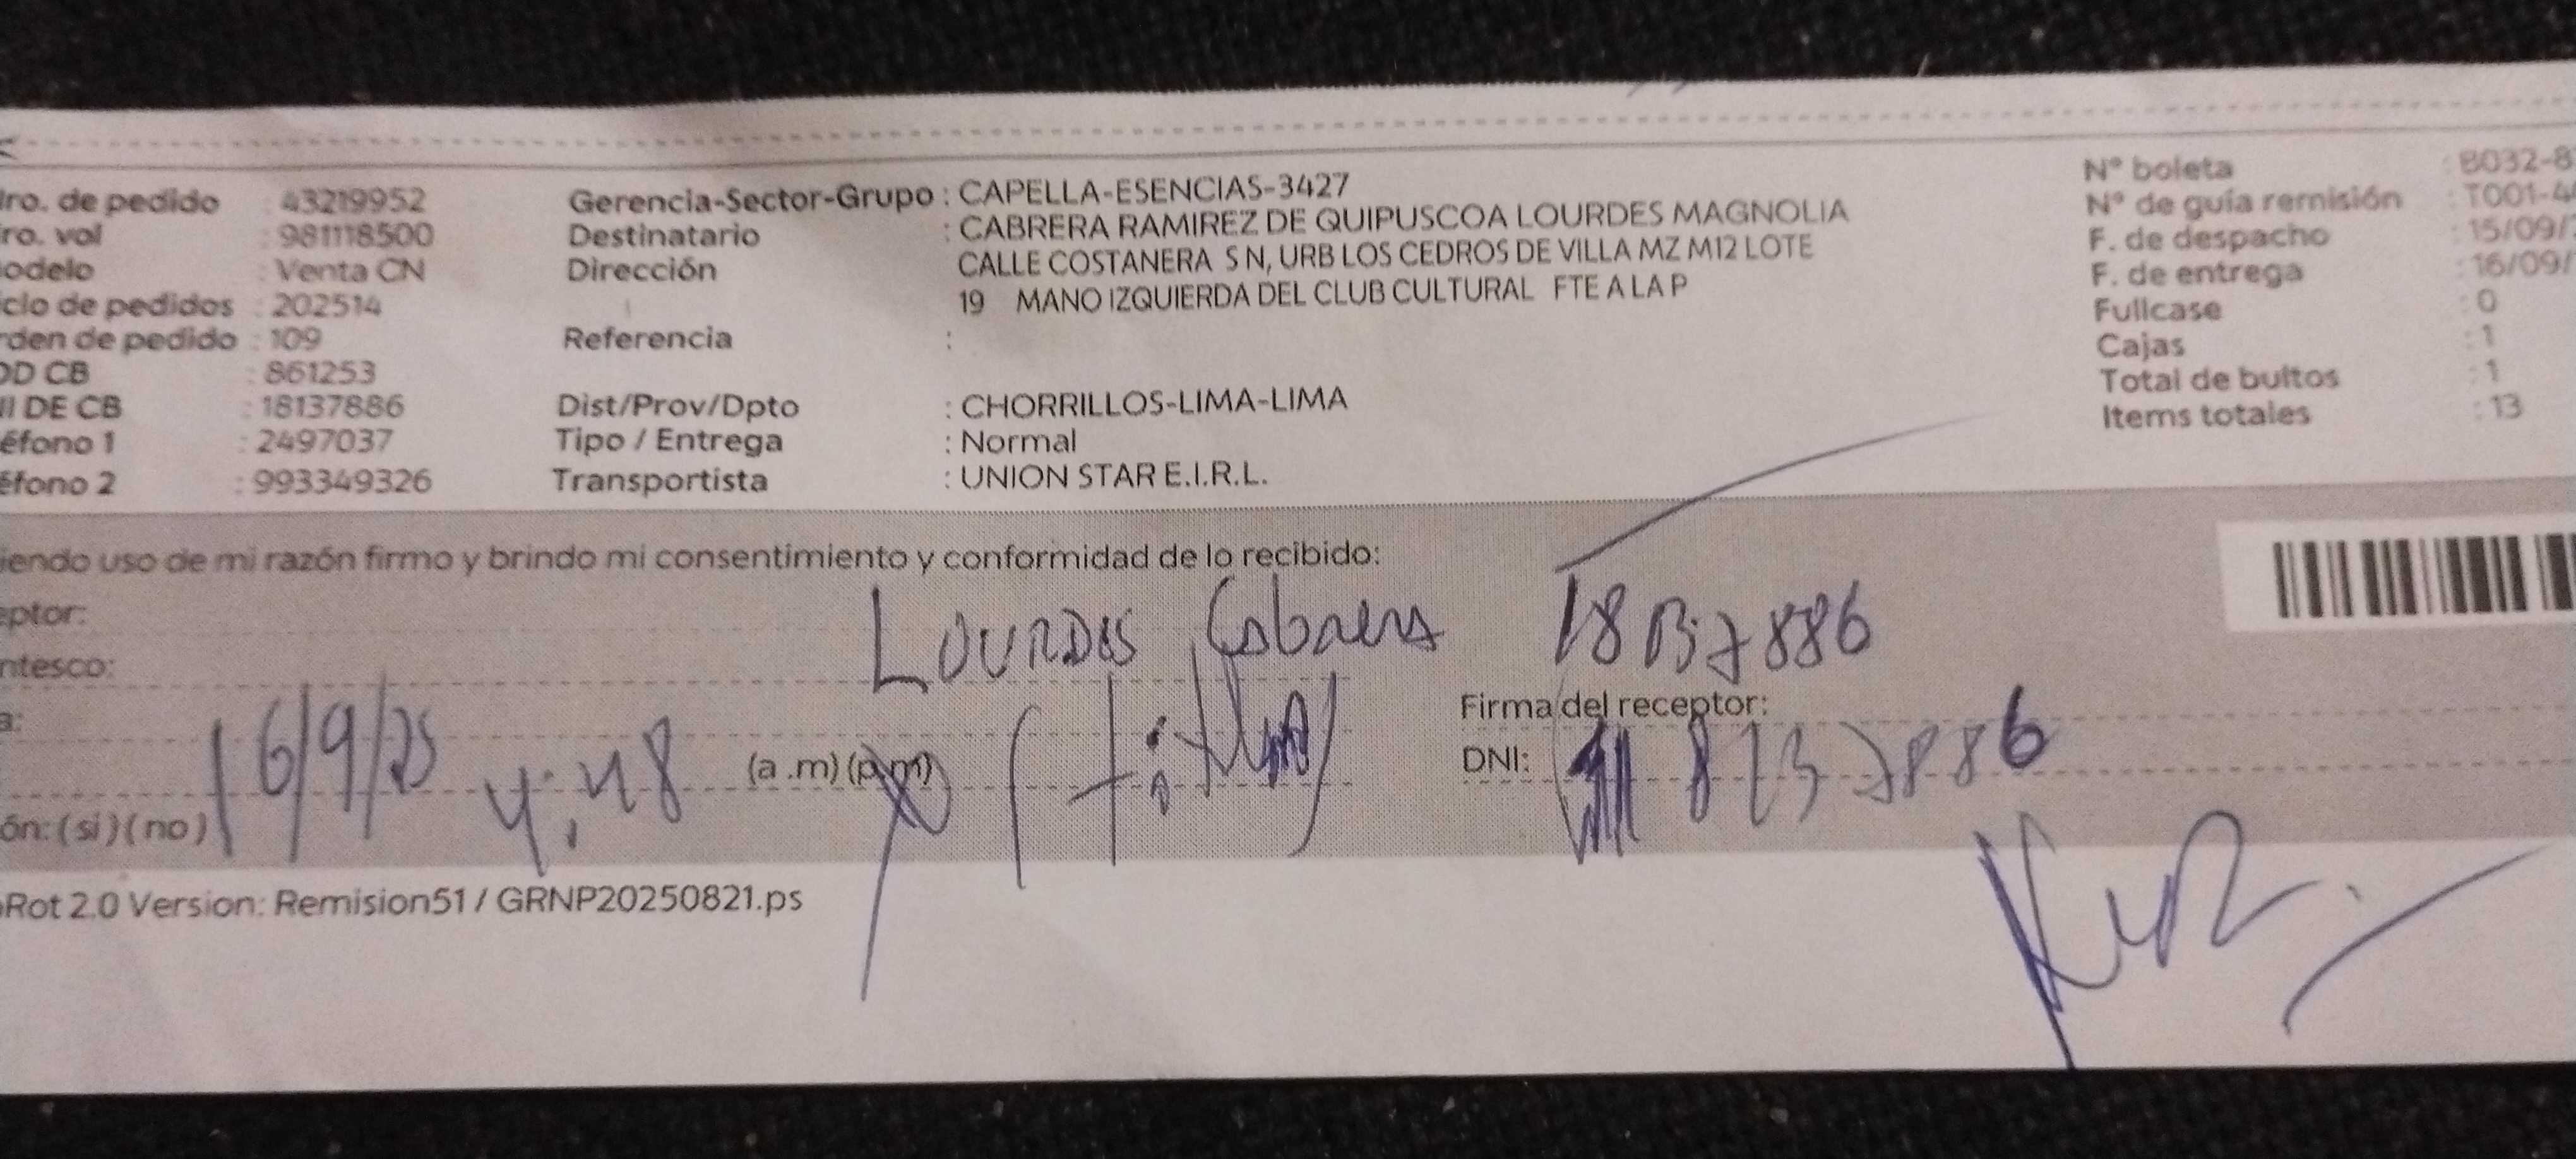 ro. de pedido : 43219952
ro. vol : 981118500
odelo : Venta CN
clo de pedidos : 202514
den de pedido : 109
OD CB : 861253
II DE CB : 18137886
éfono 1 : 2497037
éfono 2 : 993349326
Gerencia-Sector-Grupo : CAPELLA-ESENCIAS-3427
Destinatario : CABRERA RAMIREZ DE QUIPUSCOA LOURDES MAGNOLIA
Dirección CALLE COSTANERA S N, URB LOS CEDROS DE VILLA MZ M12 LOTE
19 MANO IZQUIERDA DEL CLUB CULTURAL FTE A LA P
Referencia :
Dist/Prov/Dpto : CHORRILLOS-LIMA-LIMA
Tipo / Entrega : Normal
Transportista : UNION STAR E.I.R.L.
N° boleta : B032-8
N° de guía remisión : T001-4
F. de despacho : 15/09/
F. de entrega : 16/09/
Fullcase : 0
Cajas : 1
Total de bultos : 1
Items totales : 13
iendo uso de mi razón firmo y brindo mi consentimiento y conformidad de lo recibido:
eptor: LOURDES Cabrera 18137886
ntesco: (titular)
a: 16/9/25
4:48 (a .m) (p.m)
Firma del receptor:
DNI: 18137886
ón: (si) (no)
Rot 2.0 Version: Remision51 / GRNP20250821.ps